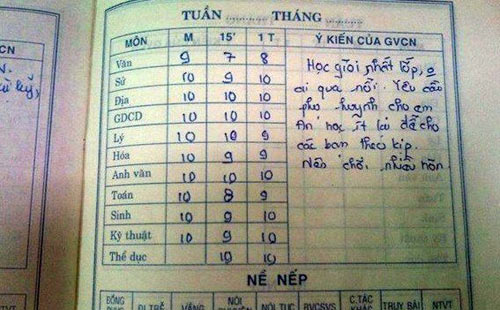 TUẦN THÁNG
CN
MÔN M 15' 1 T Ý KIẾN CỦA GVCN
Văn 9 7 8
Sử 10 9 10
Địa 10 10 10
GDCD 10 10 10
Lý 10 10 9
Hóa 10 9 9
Anh văn 10 10 10
Toán 10 8 9
Sinh 10 9 10
Kỹ thuật 10 9 10
Thể dục 10 10
Học giỏi nhất lớp, o
ai qua nỗi. Yêu cầu
phụ huynh cho em
ăn học ít lại để cho
các bạn theo kịp.
Nên chơi nhiều hơn
NỀ NẾP
ĐỒNG ĐI TRỄ VẮNG NÓI NÓI TỤC BVCSVS C.TÁC TRUY BÀI NTVT